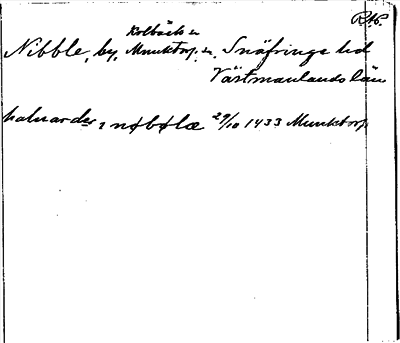 RAp.
Kolbäcks sn
Nibble, by, Munktorp sn, Snäfringe hd
Västmanlands län
haluarder i nøbølæ 29/10 1433 Munktorp